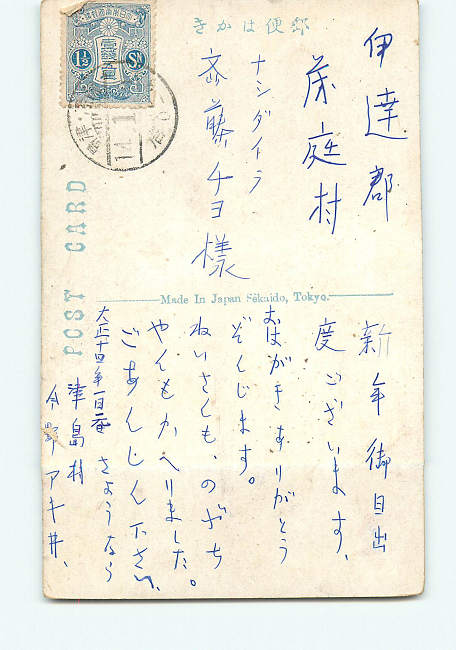 きかは便郵
大日本帝國郵便
壹錢五厘
1½ Sn
14.1.1
伊達郡
茂庭村
ナシダイラ
斎藤チヨ様
POST CARD
Made In Japan Sekaido, Tokyo.
新年御目出
度ございます、
おはがきありがとう
ぞんじます。
ねいさんも、のぶち
やんもかへりました。
ごあんしん下さい、
さようなら
大正十四年一月一日
津島村
今野アキ井、